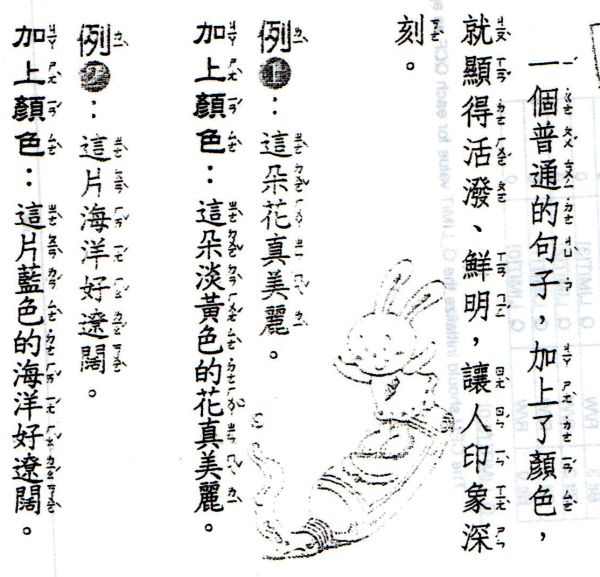 一個普通的句子，加上了顏色，
就顯得活潑、鮮明，讓人印象深
刻。
例1：這朵花真美麗。
加上顏色：這朵淡黃色的花真美麗。
例2：這片海洋好遼闊。
加上顏色：這片藍色的海洋好遼闊。